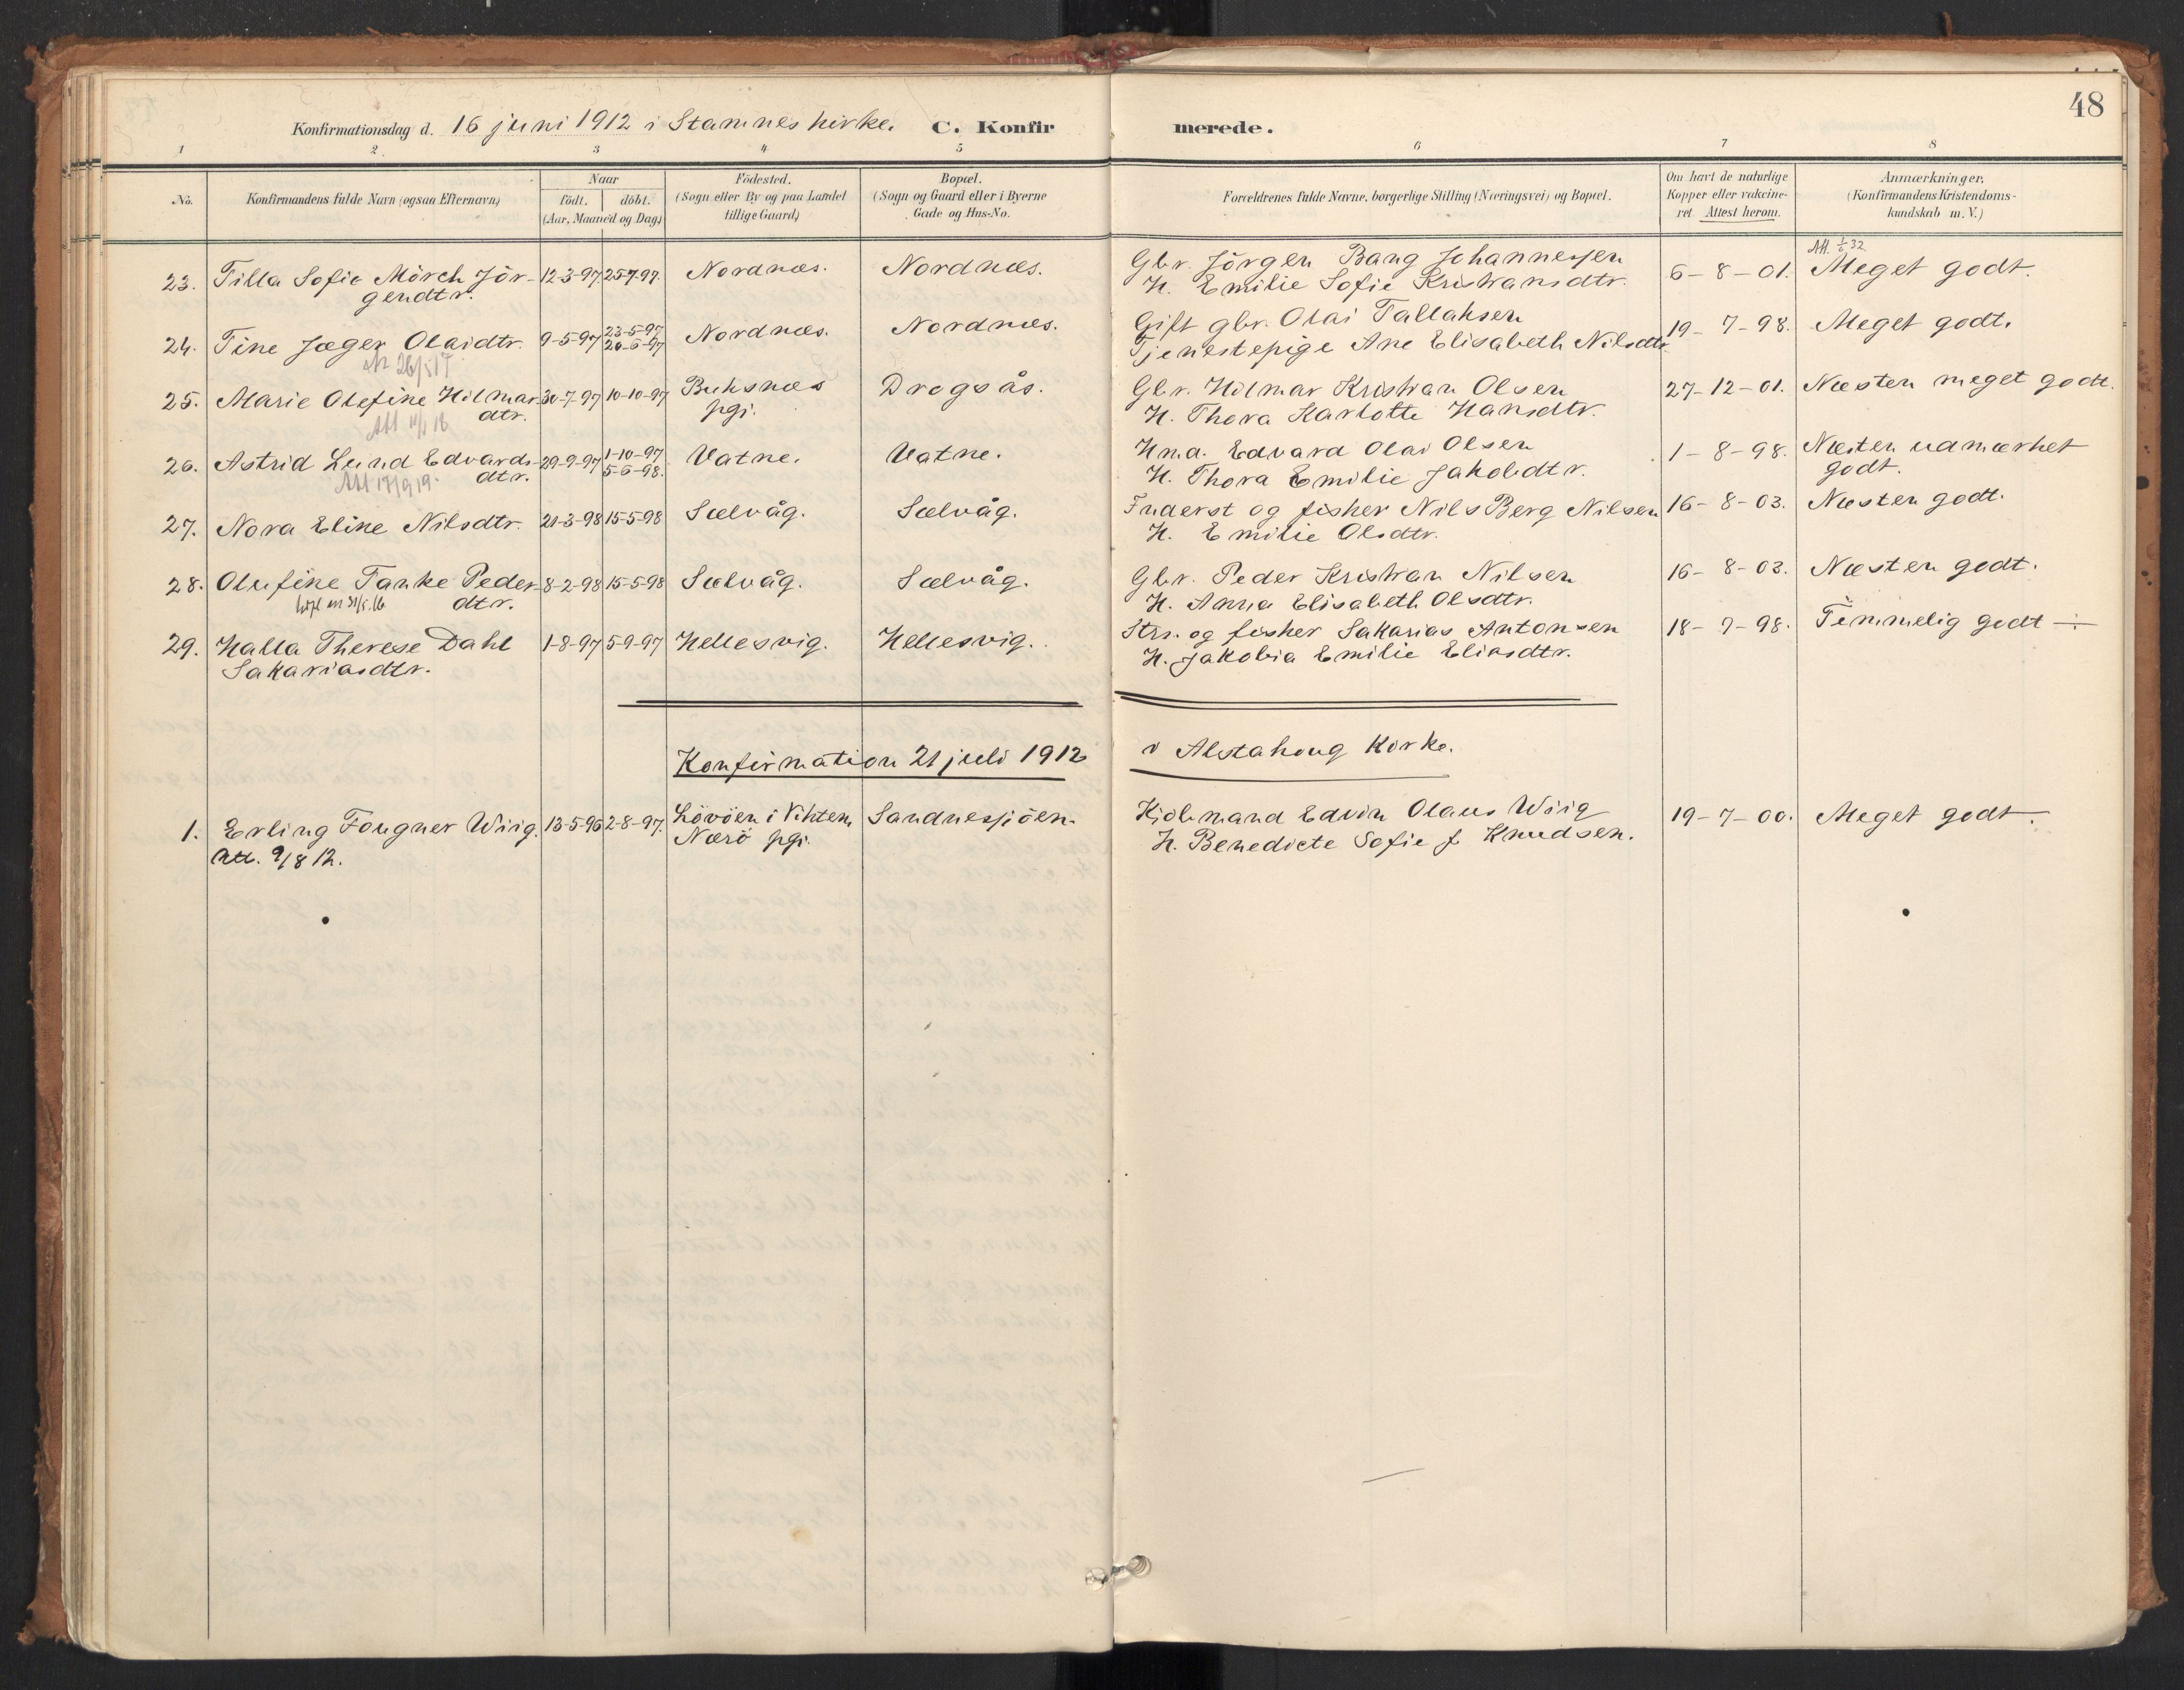 48
Konfirmationsdag d. 16 juni 1912 i Stamnes kirke. C. Konfirmerede.
1 2 3 4 5 6 7 8
No. Konfirmandens fulde Navn (ogsaa Efternavn) Naar födt. döbt. (Aar, Maaned og Dag) Födested. (Sogn eller By og paa Landet tillige Gaard) Bopæl. (Sogn og Gaard eller i Byerne Gade og Hus-No. Forældrenes fulde Navne, borgerlige Stilling (Næringsvei) og Bopæl. Om havt de naturlige Kopper eller vakcineret. Attest herom. Anmærkninger. (Konfirmandens Kristendomskundskab m. V.)
Att. 32
23. Tilla Sofie Mörch Jör- 12-3-97. 25-7-97. Nordnæs. Nordnæs. Gbr. Jörgen Bang Johannessen 6-8-01. Meget godt.
gendtr. H. Emilie Sofie Kristiansdtr.
24. Tine Jæger Olaidtr. 9-5-97 23-5-97 Nordnæs. Nordnæs. Gift gbr. Olai Tallaksen 19-7-98. Meget godt.
20-6-97 Tjenestepige Ane Elisabeth Nilsdtr
25. Marie Olefine Hilmar- 30-7-97 10-10-97 Buksnæs Drogsås. Gbr. Hilmar Kristian Olsen 27-12-01. Næsten meget godt.
dtr. pgj. H. Thora Karlotte Hansdtr.
26. Astrid Lund Edvards- 29-9-97 1-10-97 Vatne. Vatne. Hmd. Edvard Olai Olsen 1-8-98. Næsten udmærket
dtr. 5-6-98. H. Thora Emilie Jakobdtr. godt.
Att 17/9 19.
27. Nora Eline Nilsdtr. 21-3-98 15-5-98 Sælvåg. Sælvåg. Inderst og fisker Nils Berg Nilsen 16-8-03. Næsten godt.
H. Emilie Olsdtr.
28. Olufine Tanke Peder- 8-2-98 15-5-98 Sælvåg. Sælvåg. Gbr. Peder Kristian Nilsen 16-8-03. Næsten godt.
dtr. H. Anna Elisabeth Olsdtr.
29. Halla Therese Dahl 1-8-97 5-9-97 Hellesvig. Hellesvig. Strs. og fisker Sakarias Antonsen 18-7-98. Temmelig godt ÷
Sakariasdtr. H. Jakobia Emilie Eliasdtr.
Konfirmation 21 juli 1912 i Alstahoug Kirke.
1. Erling Fougner Wiig. 13-5-96 2-8-97. Lövöen i Vikten, Sandnesjöen. Kjöbmand Edvin Olaus Wiig 19-7-00. Meget godt.
Att. 9/8 12. Nærö pgj. H. Benedicte Sofie f. Knudsen.